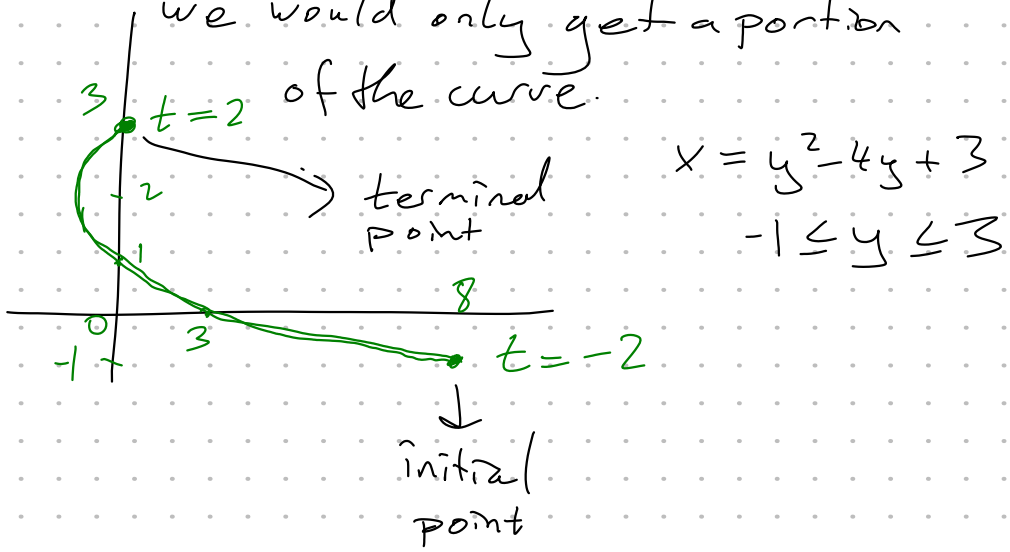 we would only get a portion
of the curve.
3
t = 2
x = y² - 4y + 3
2
terminal
point
-1 ≤ y ≤ 3
1
8
0
3
-1
t = -2
initial
point